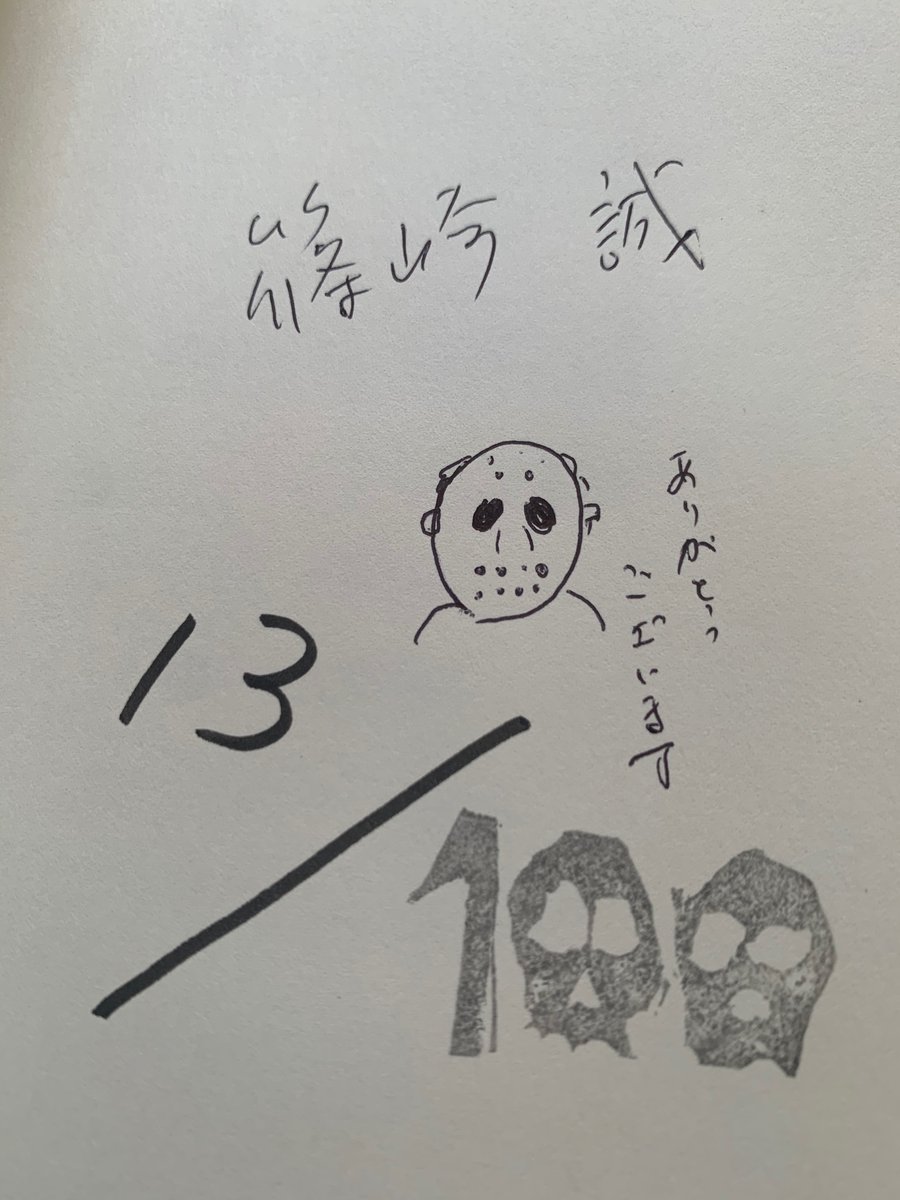 篠崎 誠
ありがとう
ございます
13
/
100